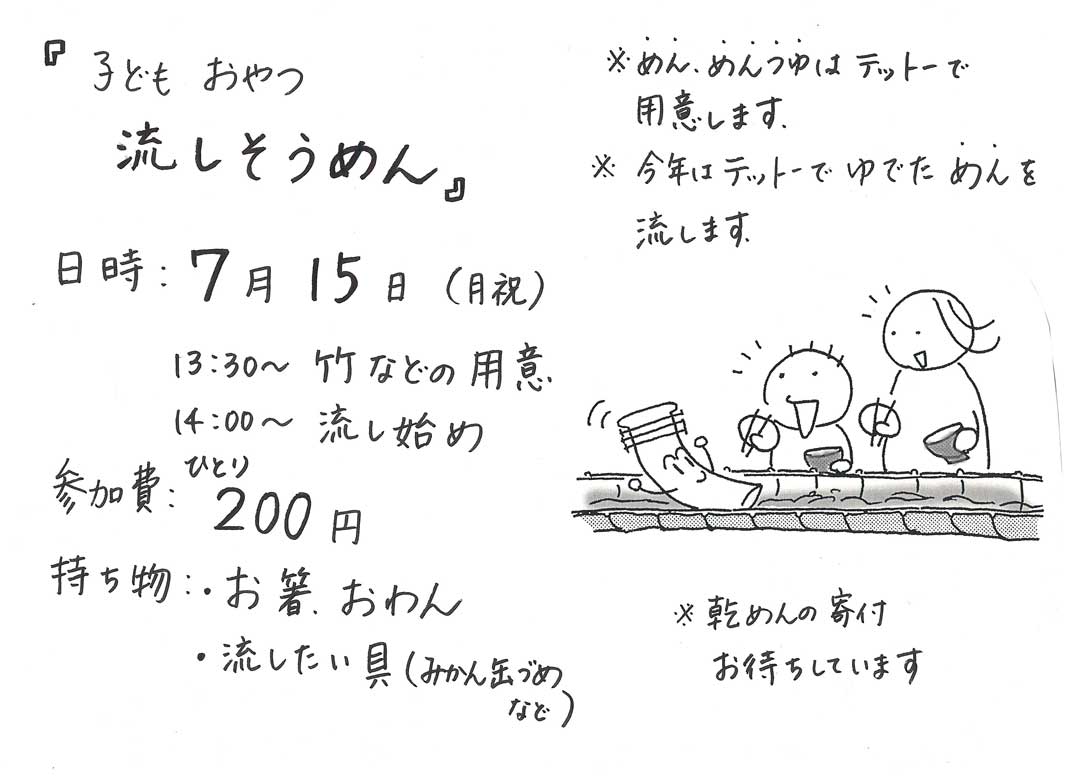 『子ども おやつ
流しそうめん』
日時：7月15日（月祝）
13:30〜 竹などの用意
14:00〜 流し始め
参加費：ひとり
200円
持ち物：・お箸、おわん
・流したい具（みかん缶づめ
など）
※めん、めんつゆはテットーで
用意します。
※ 今年はテットーでゆでためんを
流します。
※ 乾めんの寄付
お待ちしています